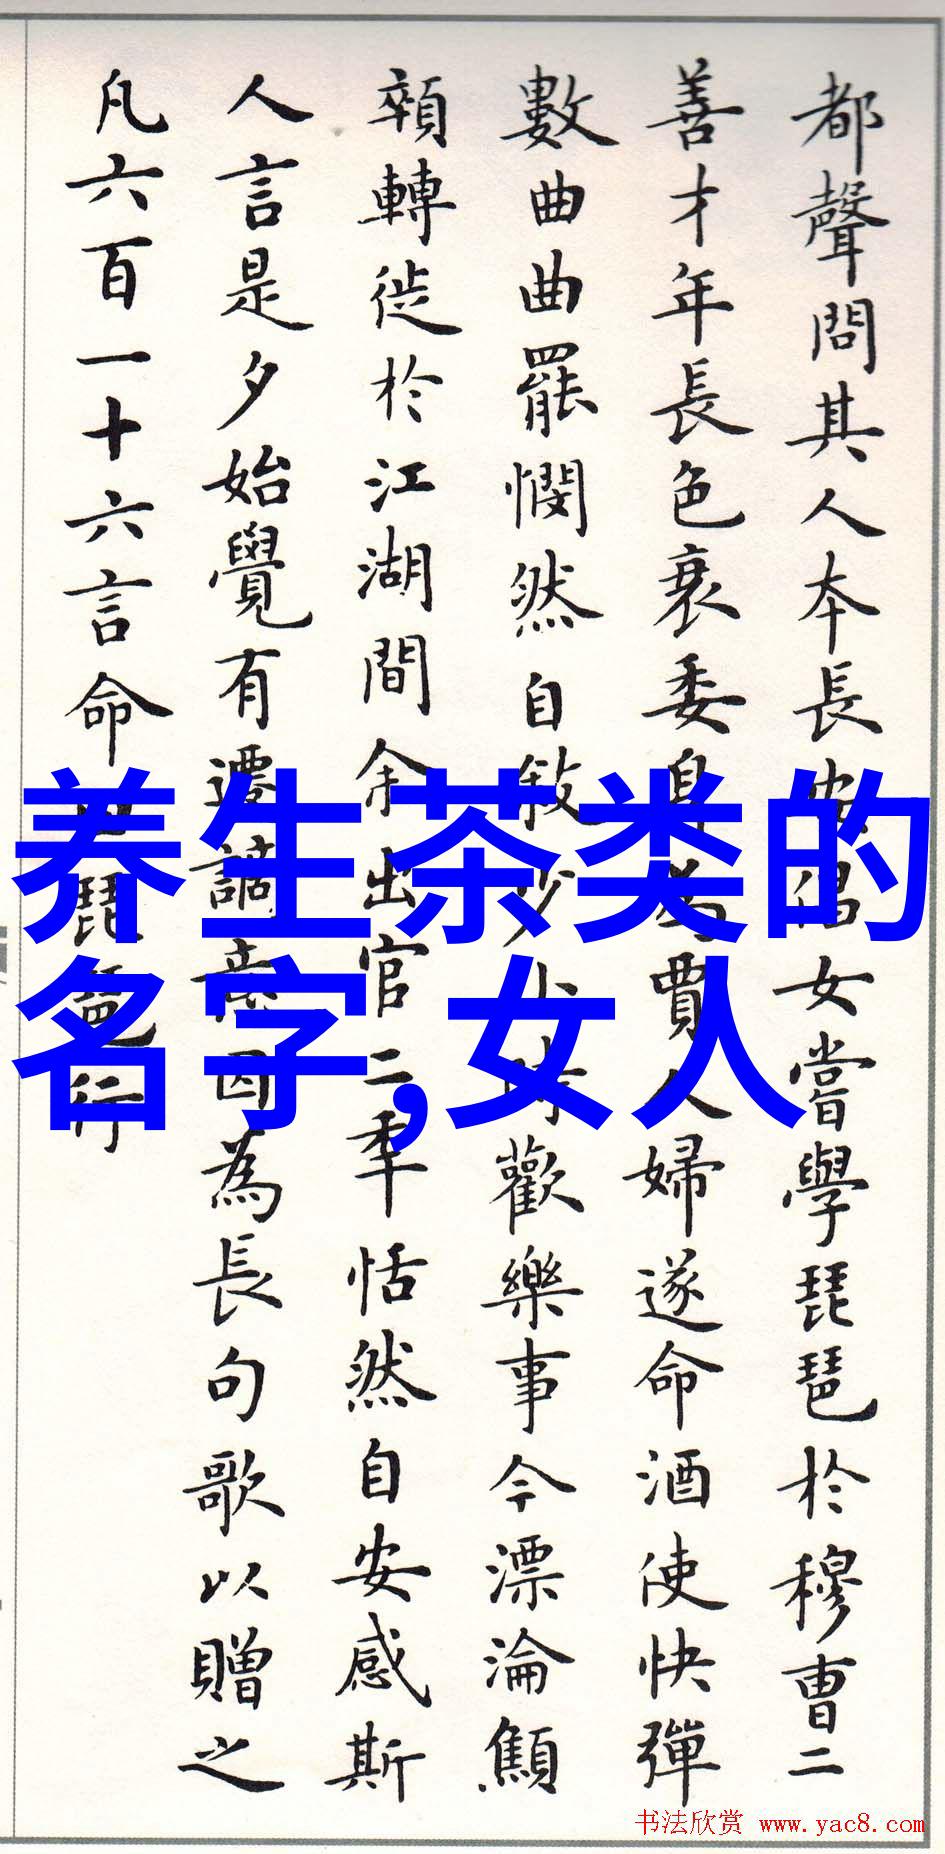 都聲問其人本長安倡女嘗學琵琶於穆曹二
善才年長色衰委身為賈人婦遂命酒使快彈
數曲曲罷憫然自敘少小時歡樂事今漂淪顦
顇轉徙於江湖間余出官二秊恬然自安感斯
人言是夕始覺有遷謫意因為長句歌以贈之
凡六百一十六言命曰琵琶行
养生茶类的
名字,女人
书法欣赏 www.yac8.com